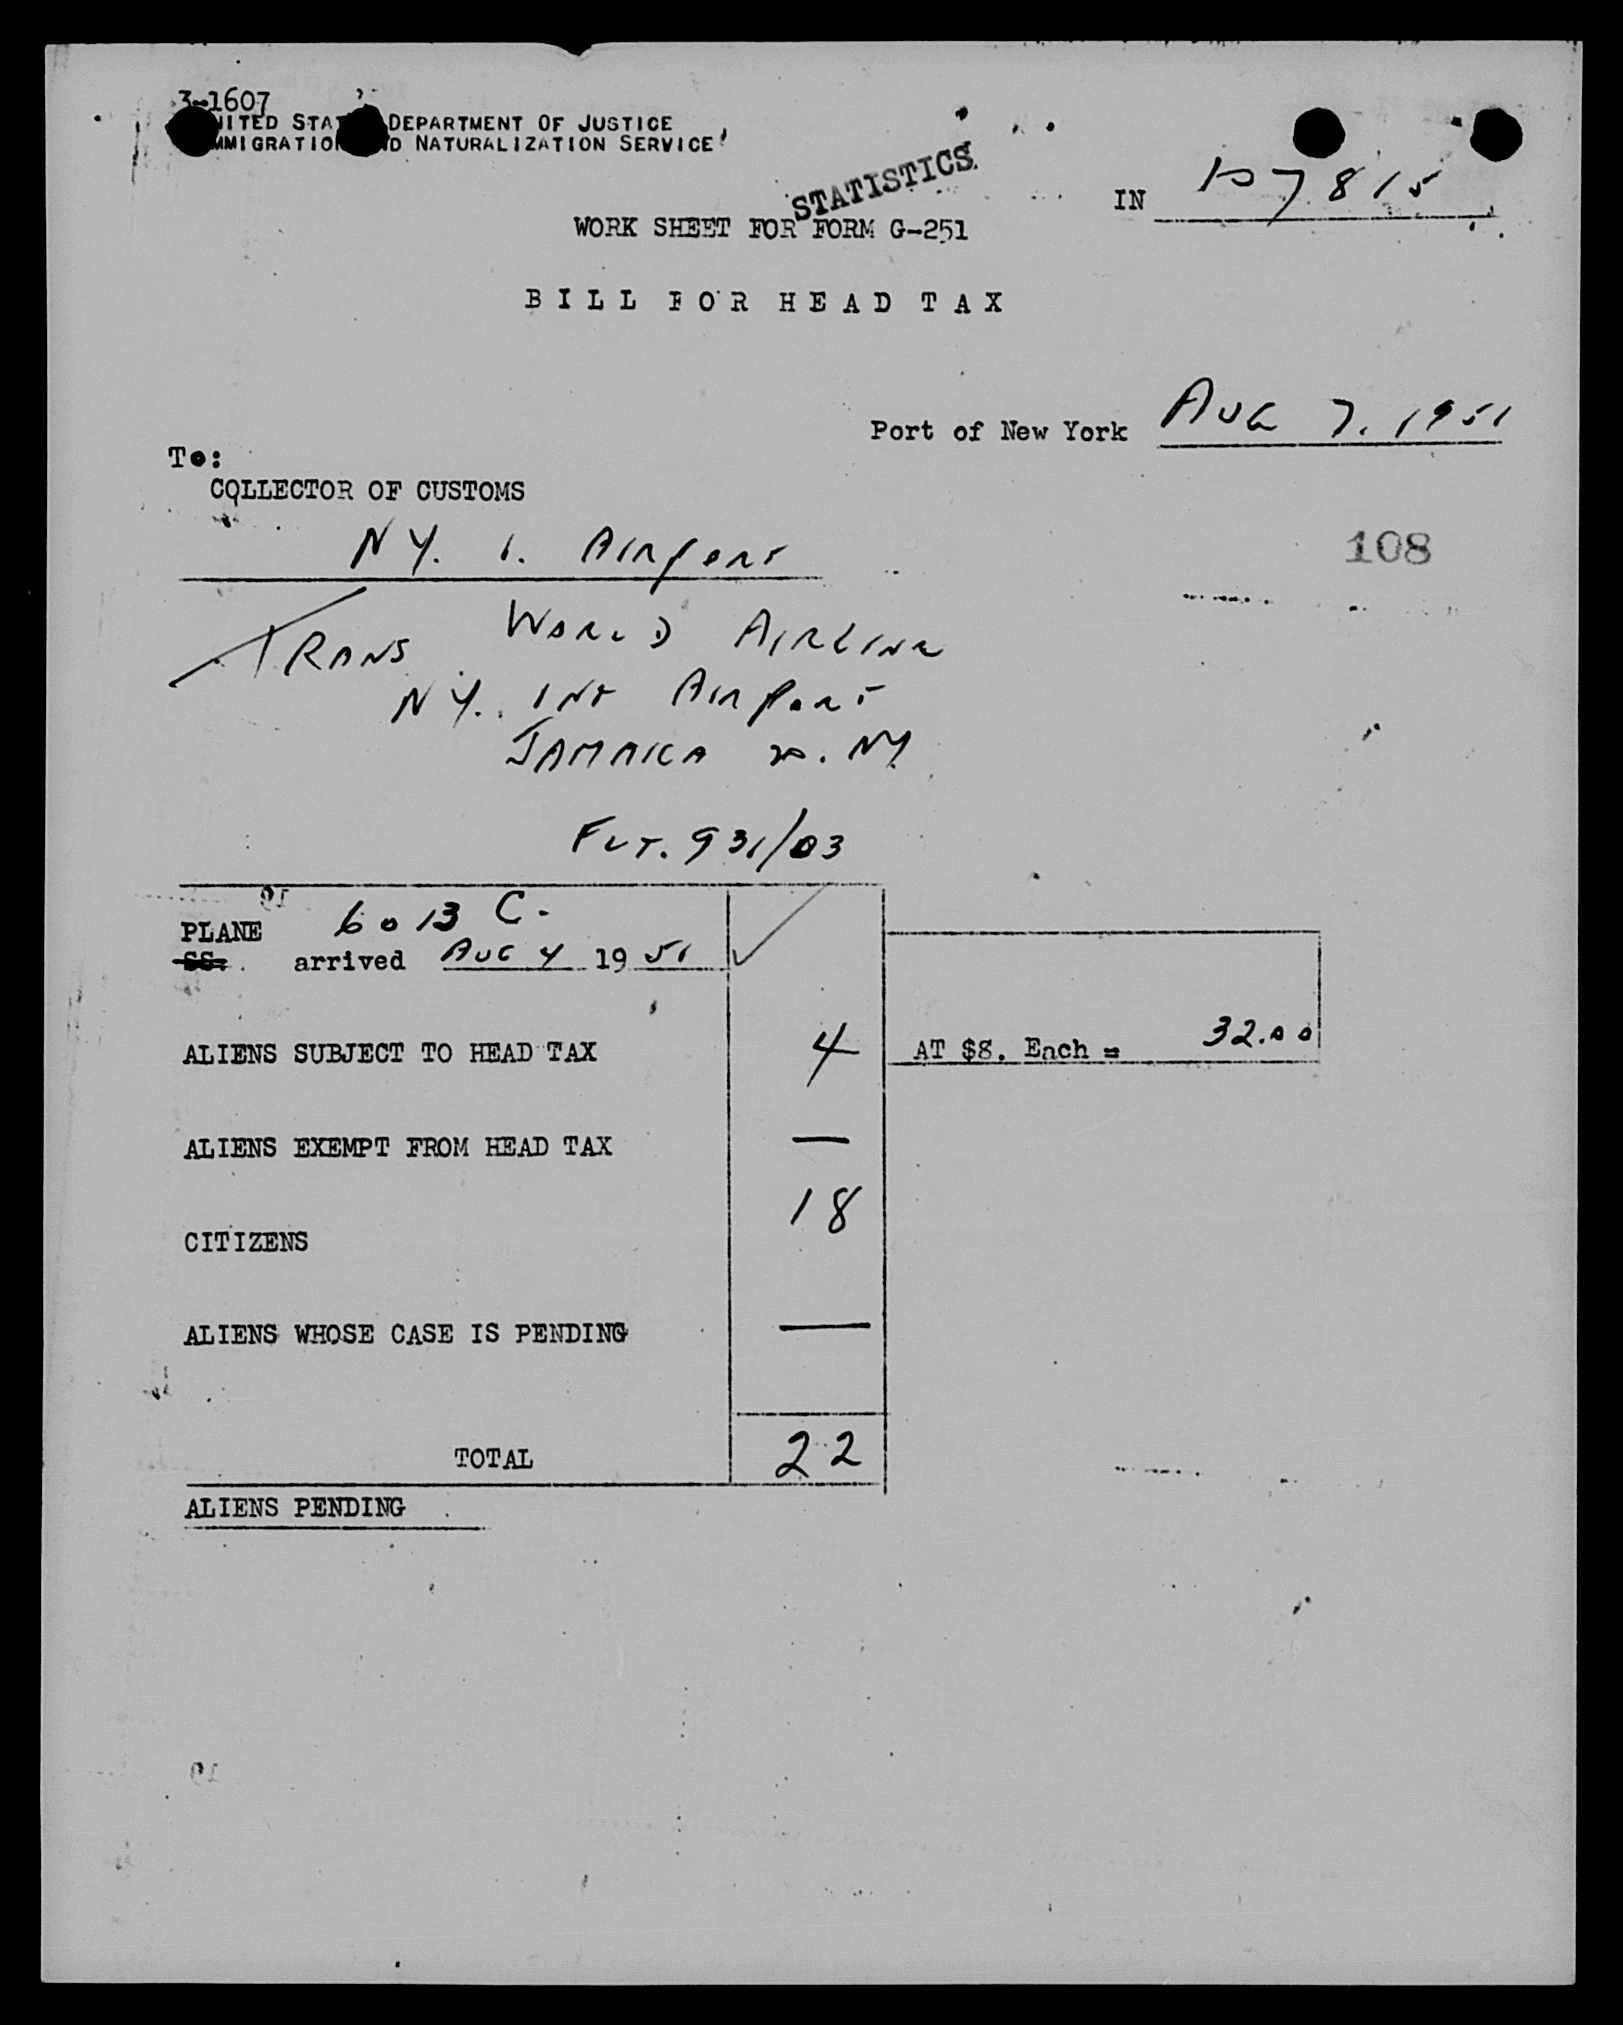 3-1607
UNITED STATES DEPARTMENT OF JUSTICE
IMMIGRATION AND NATURALIZATION SERVICE
STATISTICS
IN 107815
WORK SHEET FOR FORM G-251
BILL FOR HEAD TAX
Port of New York AUG 7, 1951
To:
COLLECTOR OF CUSTOMS
NY. I. AIRPORT
108
TRANS WORLD AIRLINE
NY. INT AIRPORT
JAMAICA NY
FLT. 931/03
19
PLANE 6013 C.
SS. arrived AUG 4 19 51
ALIENS SUBJECT TO HEAD TAX 4 AT $8. Each = 32.00
ALIENS EXEMPT FROM HEAD TAX —
CITIZENS 18
ALIENS WHOSE CASE IS PENDING —
TOTAL 22
ALIENS PENDING
19